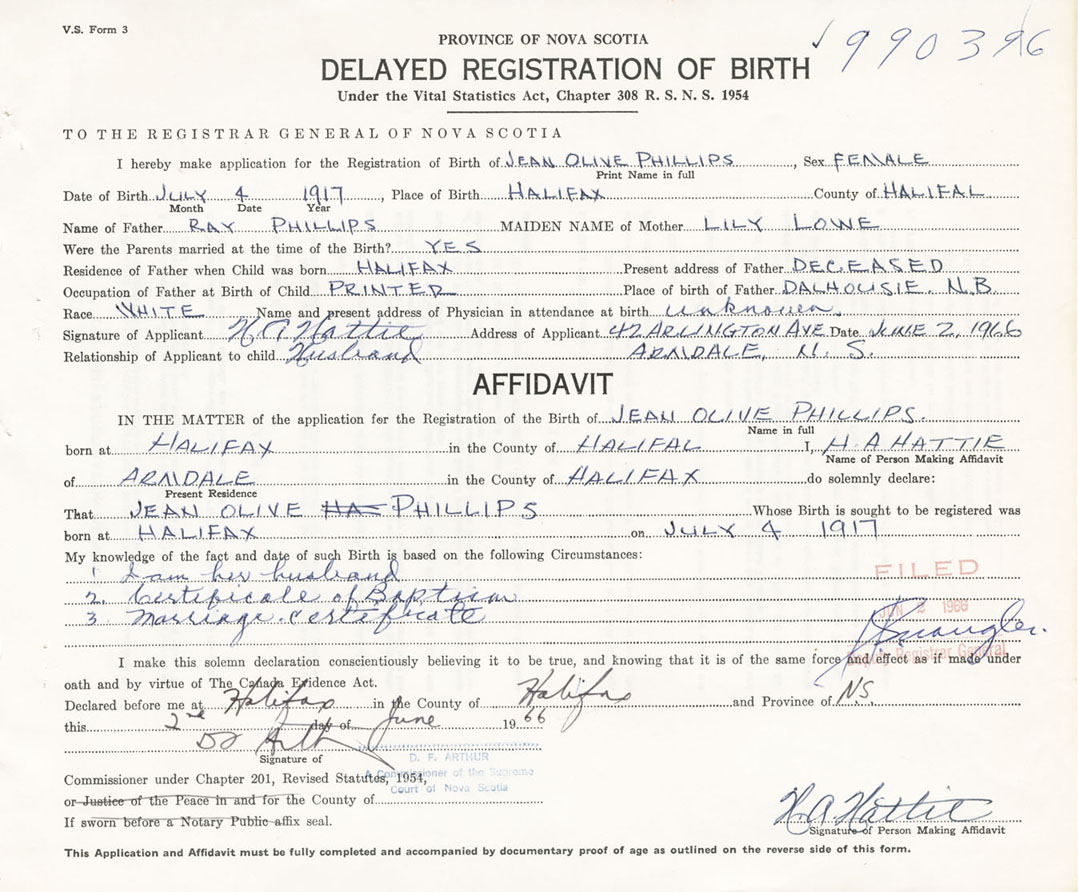 V.S. Form 3
PROVINCE OF NOVA SCOTIA
✓990396
DELAYED REGISTRATION OF BIRTH
Under the Vital Statistics Act, Chapter 308 R. S. N. S. 1954
TO THE REGISTRAR GENERAL OF NOVA SCOTIA
I hereby make application for the Registration of Birth of JEAN OLIVE PHILLIPS, Sex FEMALE
Print Name in full
Date of Birth JULY 4 1917, Place of Birth HALIFAX County of HALIFAL
Month Date Year
Name of Father RAY PHILLIPS MAIDEN NAME of Mother LILY LOWE
Were the Parents married at the time of the Birth? YES
Residence of Father when Child was born HALIFAX Present address of Father DECEASED
Occupation of Father at Birth of Child PRINTER Place of birth of Father DALHOUSIE N.B.
Race WHITE Name and present address of Physician in attendance at birth unknown.
Signature of Applicant H A Hattie Address of Applicant 42 ARLINGTON AVE Date JUNE 2, 1966
Relationship of Applicant to child Husband ARMDALE, N. S.
AFFIDAVIT
IN THE MATTER of the application for the Registration of the Birth of JEAN OLIVE PHILLIPS.
Name in full
born at HALIFAX in the County of HALIFAL I, H A HATTIE
Name of Person Making Affidavit
of ARMDALE in the County of HALIFAX do solemnly declare:
Present Residence
That JEAN OLIVE HA PHILLIPS Whose Birth is sought to be registered was
born at HALIFAX on JULY 4 1917
My knowledge of the fact and date of such Birth is based on the following Circumstances:
1 I am her husband
FILED
2. Certificate of Baptism
JUN 2 1966
3 Marriage certificate
Registrar General
I make this solemn declaration conscientiously believing it to be true, and knowing that it is of the same force and effect as if made under
oath and by virtue of The Canada Evidence Act.
Declared before me at Halifax in the County of Halifax and Province of N.S.
this 2nd day of June 1966
D F Arthur
Signature of
D. F. ARTHUR
A Commissioner of the Supreme
Court of Nova Scotia
Commissioner under Chapter 201, Revised Statutes, 1954,
or Justice of the Peace in and for the County of
If sworn before a Notary Public affix seal.
H. A. Hattie
Signature of Person Making Affidavit
This Application and Affidavit must be fully completed and accompanied by documentary proof of age as outlined on the reverse side of this form.